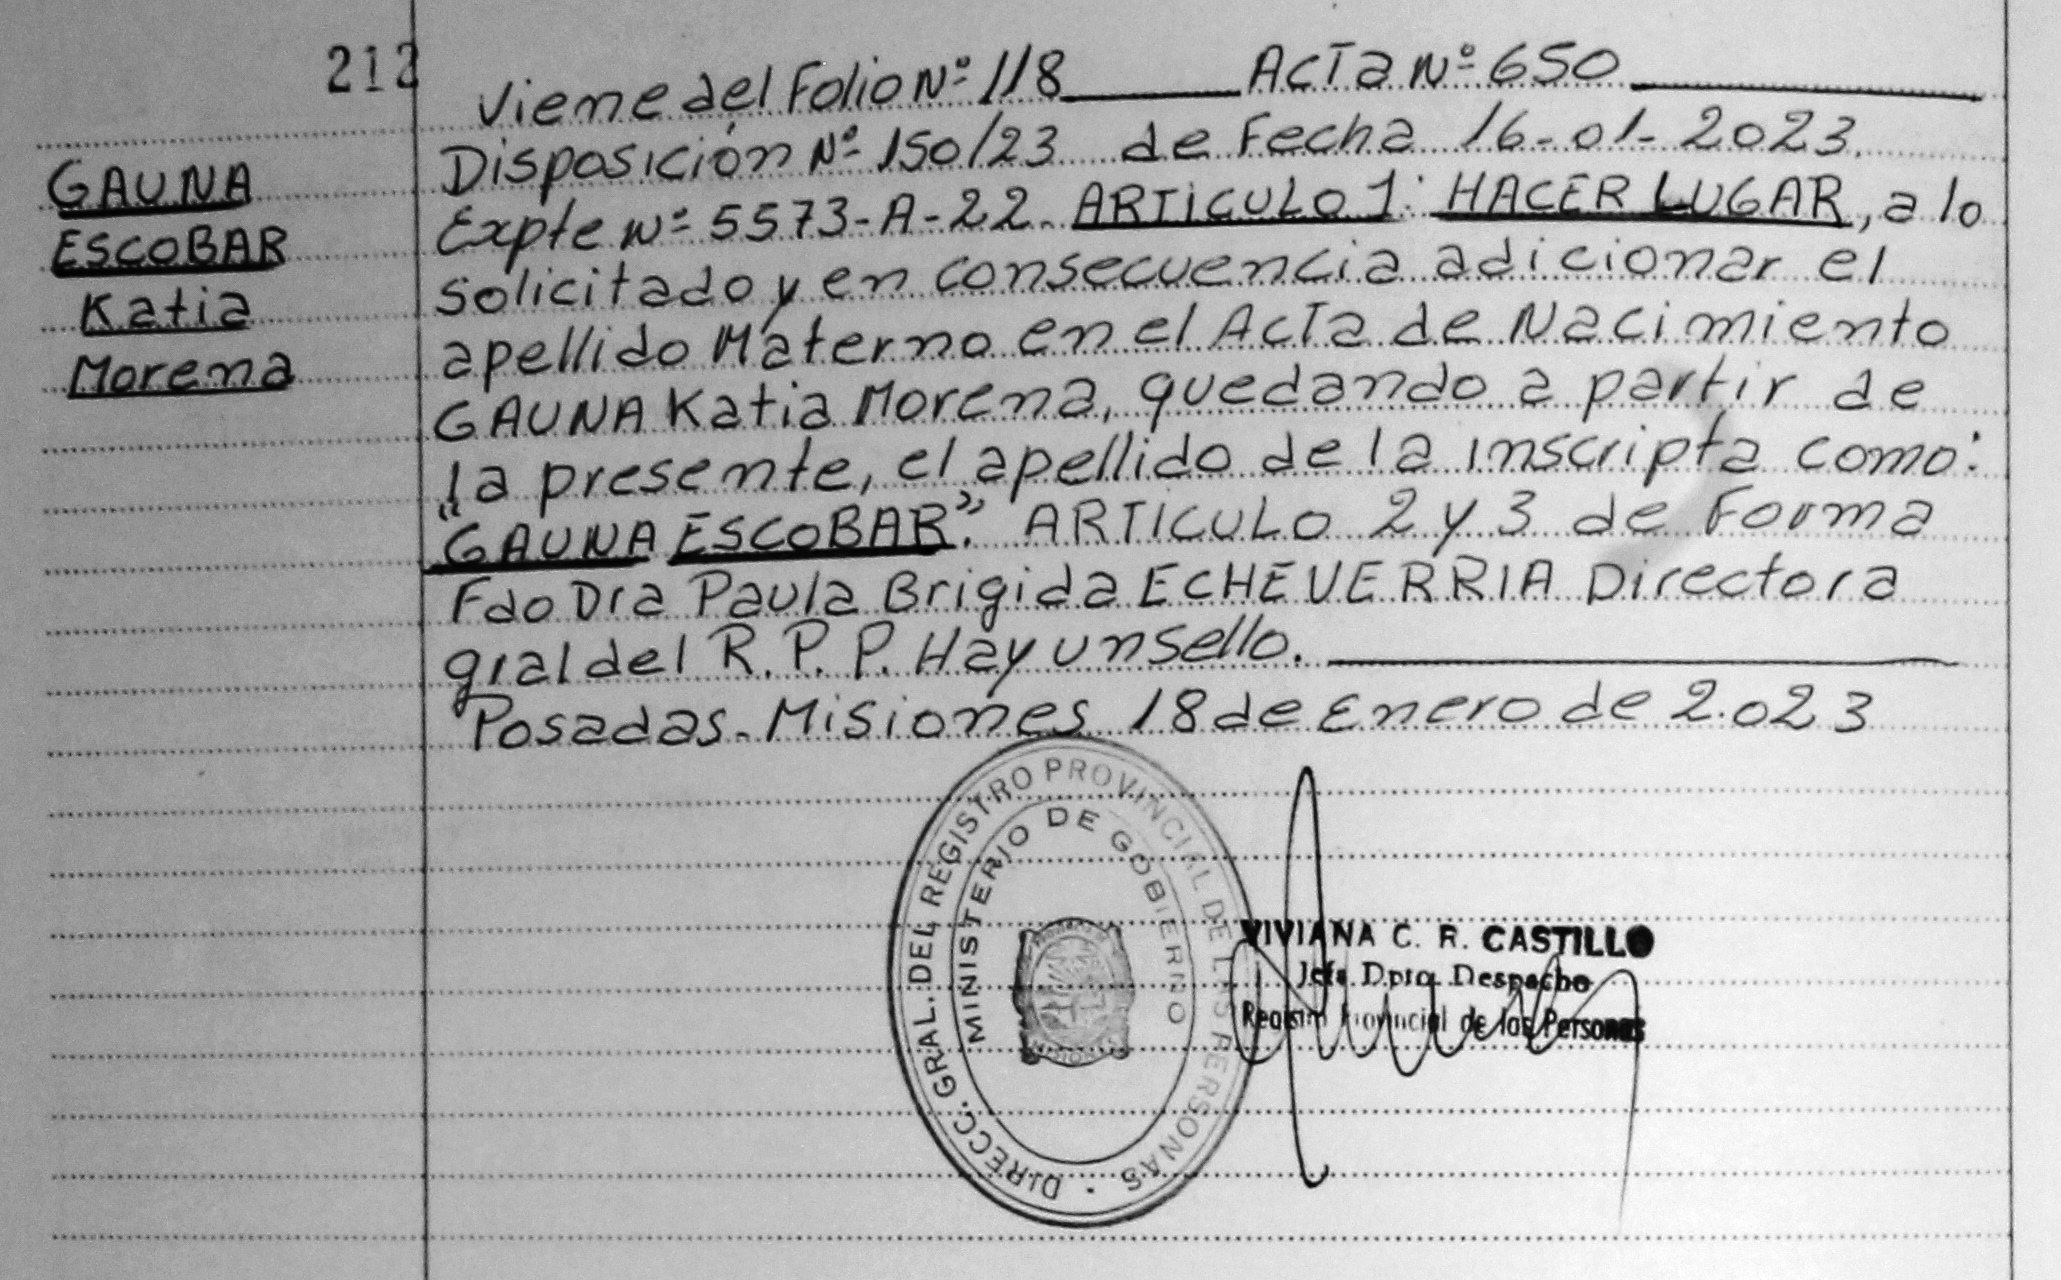 212
Viene del Folio Nº 118 Acta Nº 650
GAUNA
ESCOBAR
Katia
Morena
Disposición Nº 150/23 de Fecha 16-01-2023.
Expte Nº 5573-A-22. ARTICULO 1: HACER LUGAR, a lo
solicitado y en consecuencia adicionar el
apellido Materno en el Acta de Nacimiento
GAUNA Katia Morena, quedando a partir de
la presente, el apellido de la inscripta como:
"GAUNA ESCOBAR". ARTICULO 2 y 3 de Forma
Fdo Dra Paula Brigida ECHEVERRIA Directora
gral del R.P.P. Hay un sello.
Posadas. Misiones 18 de Enero de 2.023
DIRECC. GRAL. DEL REGISTRO PROVINCIAL DE LAS PERSONAS
MINISTERIO DE GOBIERNO
MISIONES
VIVIANA C. R. CASTILLO
Jefa Dpto Despacho
Registro Provincial de las Personas